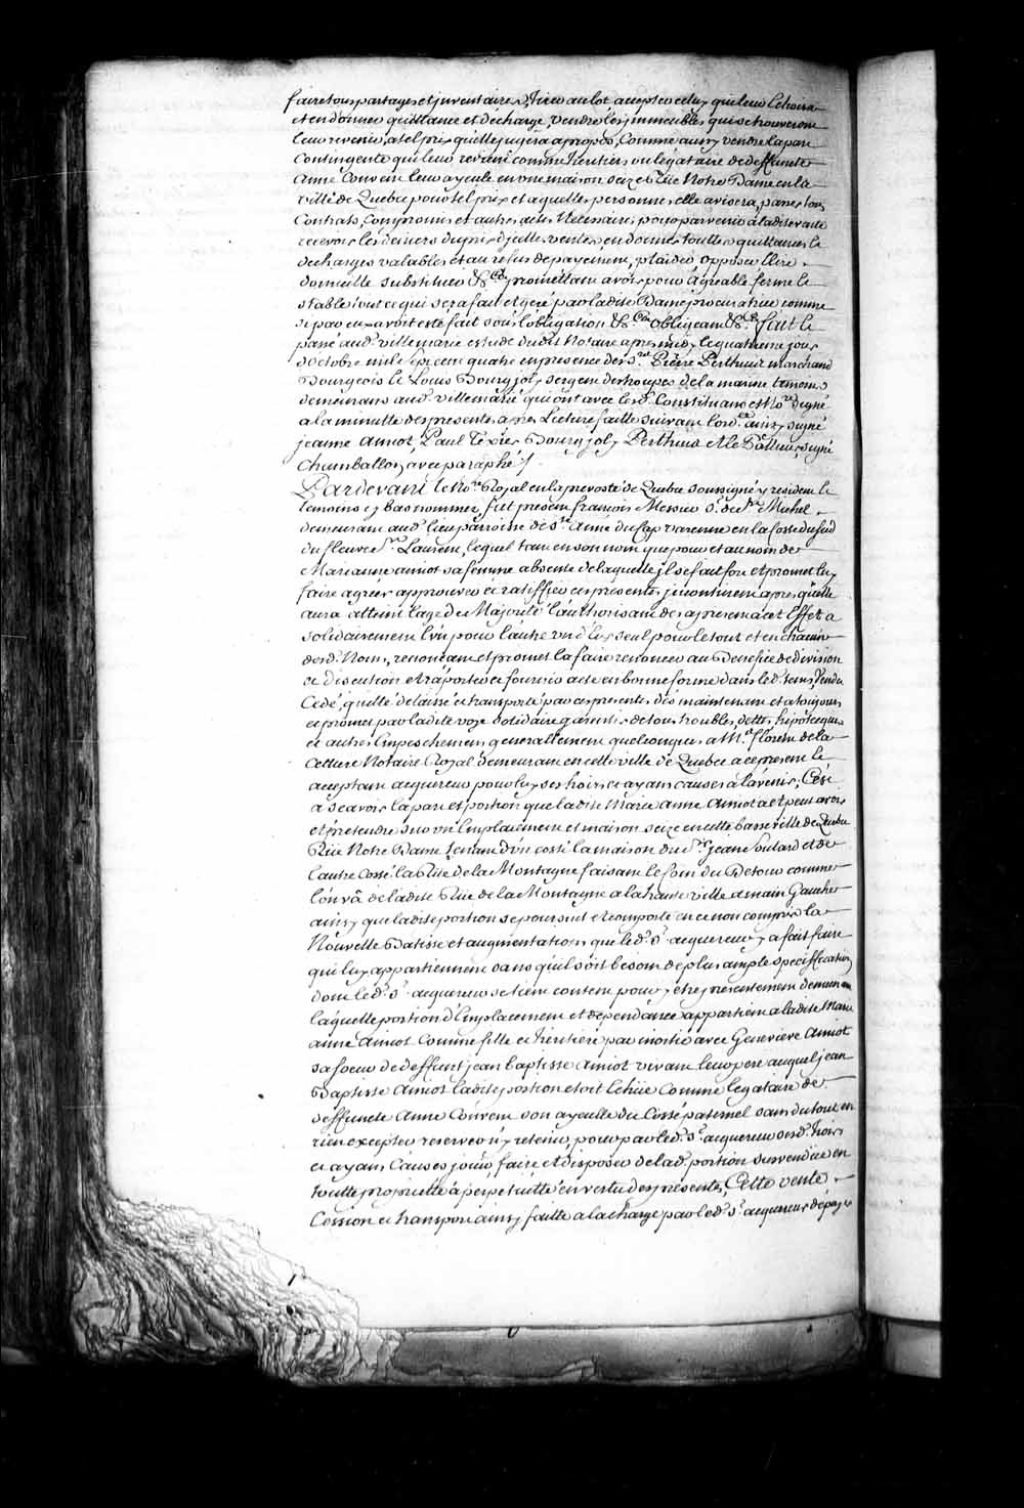 faire tous partages et inventaires, tirer au lot accepter celuy qui leur echoira
et en donner quittance et decharge, vendre les jmmeubles qui se trouveront
leur revenir, a tel prix qu'elle jugera apropos, Comme aussy vendre la part
Contingente qui leur revient comme heritiers ou legataire de deffuncte
Anne Convent leur ayeule en une maison seize Rüe Notre Dame en la
ville de Quebec pour tel prix et a quelles personnes elle avisera, passer tous
Contrats, Compromis et autres actes Necessaires, pour parvenir a ladite vente
recevoir les deniers du prix d'jcelle vente, en donner touttes quittances Et
decharges valables et au refus de payement, plaider opposer Elire
domicille substituer &c.ª promettant avoir pour agreable ferme Et
stable tout ce qui sera fait et geré par ladite Dame procuratrice comme
si par eux avoit esté fait sous l'obligation &c.ª obligeant &c.ª fait Et
passé aud.t villemarie estude dudit Notaire apres midy le quatrieme jour
d'octobre mil sept cent quatre en presence des s.rs Pierre Perthuis marchand
Bourgeois Et Louis Bourgjoly sergent des troupes de la marine temoins
demeurans aud.t villemarie qui ont avec lesd. Constituans et No.re signé
a la minutte des presentes apres Lecture faitte suivant l'ord.ce ainsy signé
jeanne Amiot, Paul Texier, Bourgjoly Perthuis et Le Pallieur, signé
Chamballon avec paraphe /.
Pardevant le No.re Royal en la prevosté de Quebec soussigné y resident Et
temoins cy bas nommez fut present francois Messier s.r de S.t Michel
demeurant aud.t lieu parroisse de S.te Anne du Cap Varenne en la Coste du sud
du fleuve S.t Laurent, lequel tant en son nom que pour et au nom de
Marianne amiot sa femme absente de laquelle jl se fait fort et promet luy
faire agréer approuver et ratiffier ces presentes jncontinent apres qu'elle
aura atteint l'age de Majorité l'authorisant des a present a cet Effet a
solidairement l'un pour l'autre un d'Eux seul pour le tout et en chacun
desd. Noms, renonçant et promet la faire renoncer au Benefice de division
et discution et raporter et fournir acte en bonne forme dans led. tems, Vendu
Cedé, quitté delaissé et transporté par ces presentes dés maintenant et a toujours
et promet par ladite voye solidaire garentir de tous troubles, dettes, hipotecques
et autres Empeschemens generallement quelconques a M.e florent de la
Cetiere Notaire Royal demeurant en cette ville de Quebec a ce present Et
acceptant acquereur pour luy ses hoirs et ayans causes a l'avenir, C'est
a scavoir la part et portion que ladite Marie Anne Amiot a et peut avoir
et pretendre sur un Emplacement et maison seize en cette basse ville de Quebec
Rüe Notre Dame tenant d'un costé la maison du s.r jean soulard et de
l'autre Costé la Rüe de la Montagne faisant le Coin du Detour comme
l'on va de ladite Rüe de la Montagne a la haute ville a main Gauche
ainsy que ladite portion se poursuit et comporte en ce non compris la
Nouvelle Batisse et augmentations que led. s.r acquereur y a fait faire
qui luy appartiennent sans qu'il soit besoin de plus ample speciffication
dont led. s.r acquereur se tient content pour y etre presentement demeurant
laquelle portion d'Emplacement et dependance appartient a ladite Marie
anne Amiot Comme fille et heritiere par moitié avec Genevieve Amiot
sa soeur de deffunt jean baptiste Amiot vivant leur pere auquel jean
Baptiste Amiot ladite portion etoit Echüe Comme legataire de
deffuncte Anne Convent son ayeulle du Costé paternel sans du tout en
rien excepter reserver n'y retenir, pour par led. s.r acquereur sesd. hoirs
et ayans Causes jouir faire et disposer de lad. portion susvendüe en
toutte proprieté a perpetuitté en vertu des presentes, Cette vente
Cession et transport ainsy faitte a la charge par led. s.r acquereur de payer